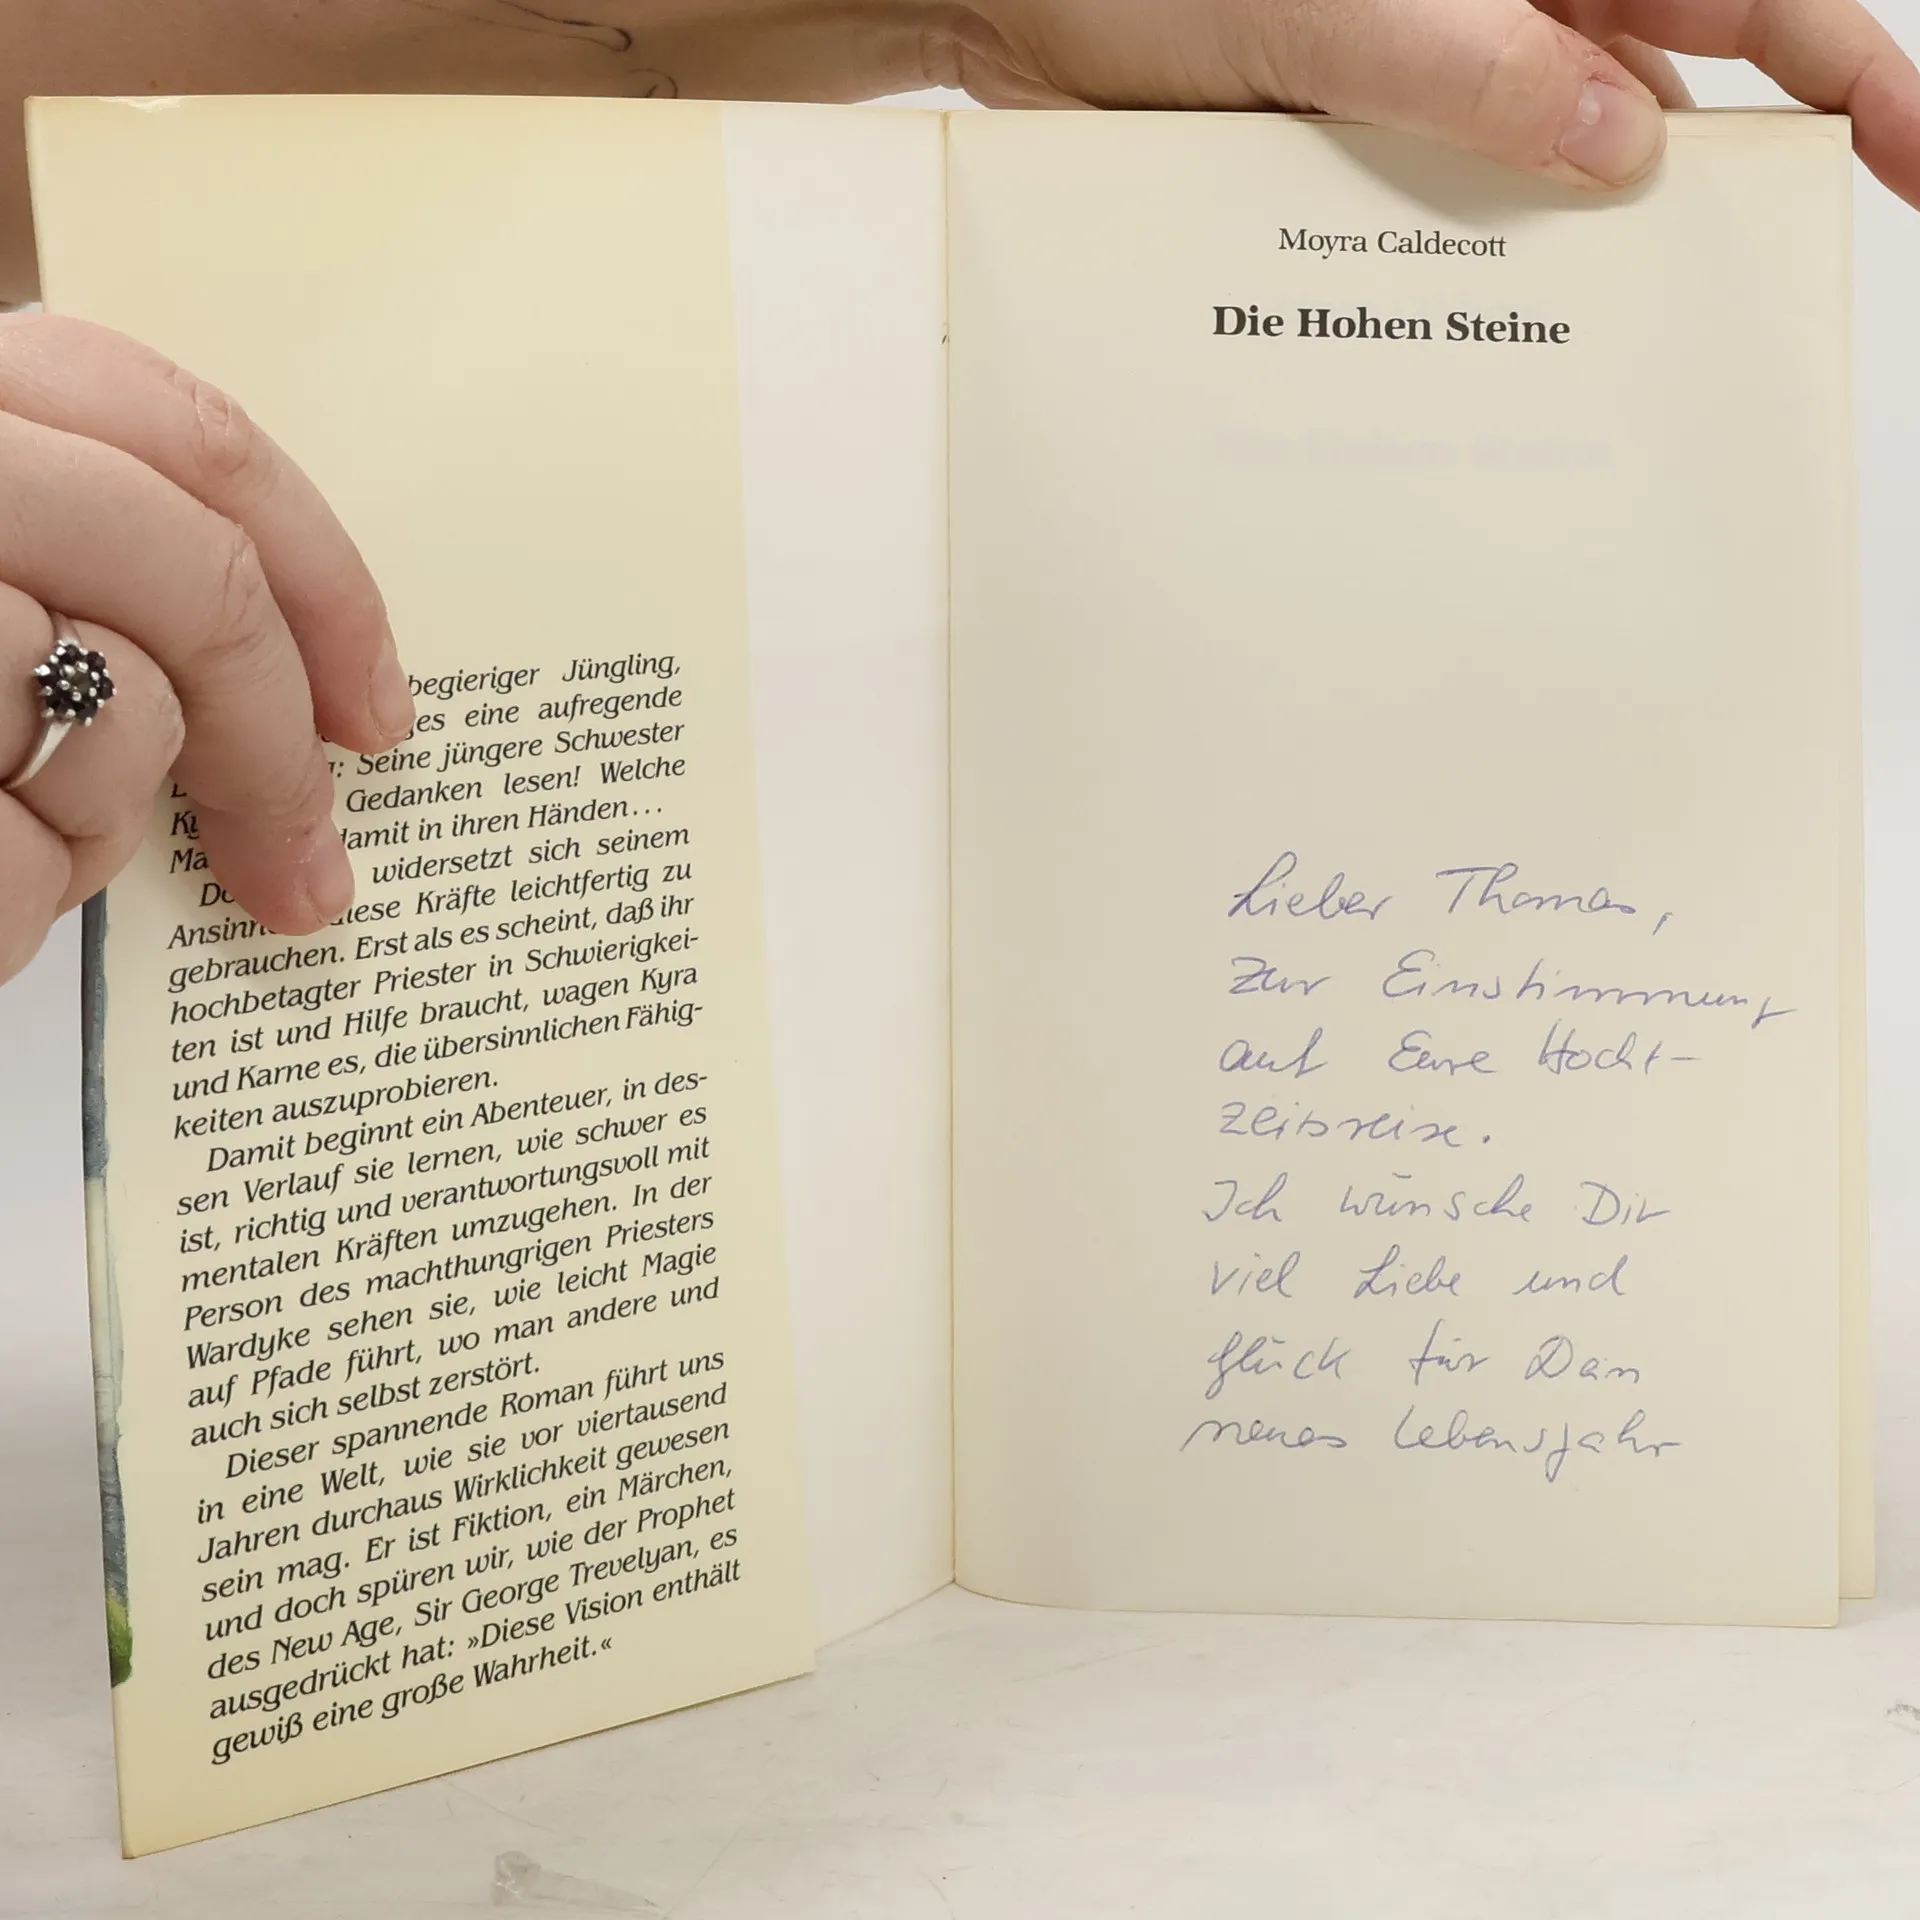 begieriger Jüngling,
eine aufregende
Seine jüngere Schwester
Gedanken lesen! Welche
damit in ihren Händen...
widersetzt sich seinem
diese Kräfte leichtfertig zu
gebrauchen. Erst als es scheint, daß ihr
hochbetagter Priester in Schwierigkei-
ten ist und Hilfe braucht, wagen Kyra
und Karne es, die übersinnlichen Fähig-
keiten auszuprobieren.
Damit beginnt ein Abenteuer, in des-
sen Verlauf sie lernen, wie schwer es
ist, richtig und verantwortungsvoll mit
mentalen Kräften umzugehen. In der
Person des machthungrigen Priesters
Wardyke sehen sie, wie leicht Magie
auf Pfade führt, wo man andere und
auch sich selbst zerstört.
Dieser spannende Roman führt uns
in eine Welt, wie sie vor viertausend
Jahren durchaus Wirklichkeit gewesen
sein mag. Er ist Fiktion, ein Märchen,
und doch spüren wir, wie der Prophet
des New Age, Sir George Trevelyan, es
ausgedrückt hat: »Diese Vision enthält
gewiß eine große Wahrheit.«
Moyra Caldecott
Die Hohen Steine
Lieber Thomas,
zur Einstimmung
auf Eure Hocht-
zeitsreise.
Ich wünsche Dir
viel Liebe und
Glück für Dein
neues Lebensjahr